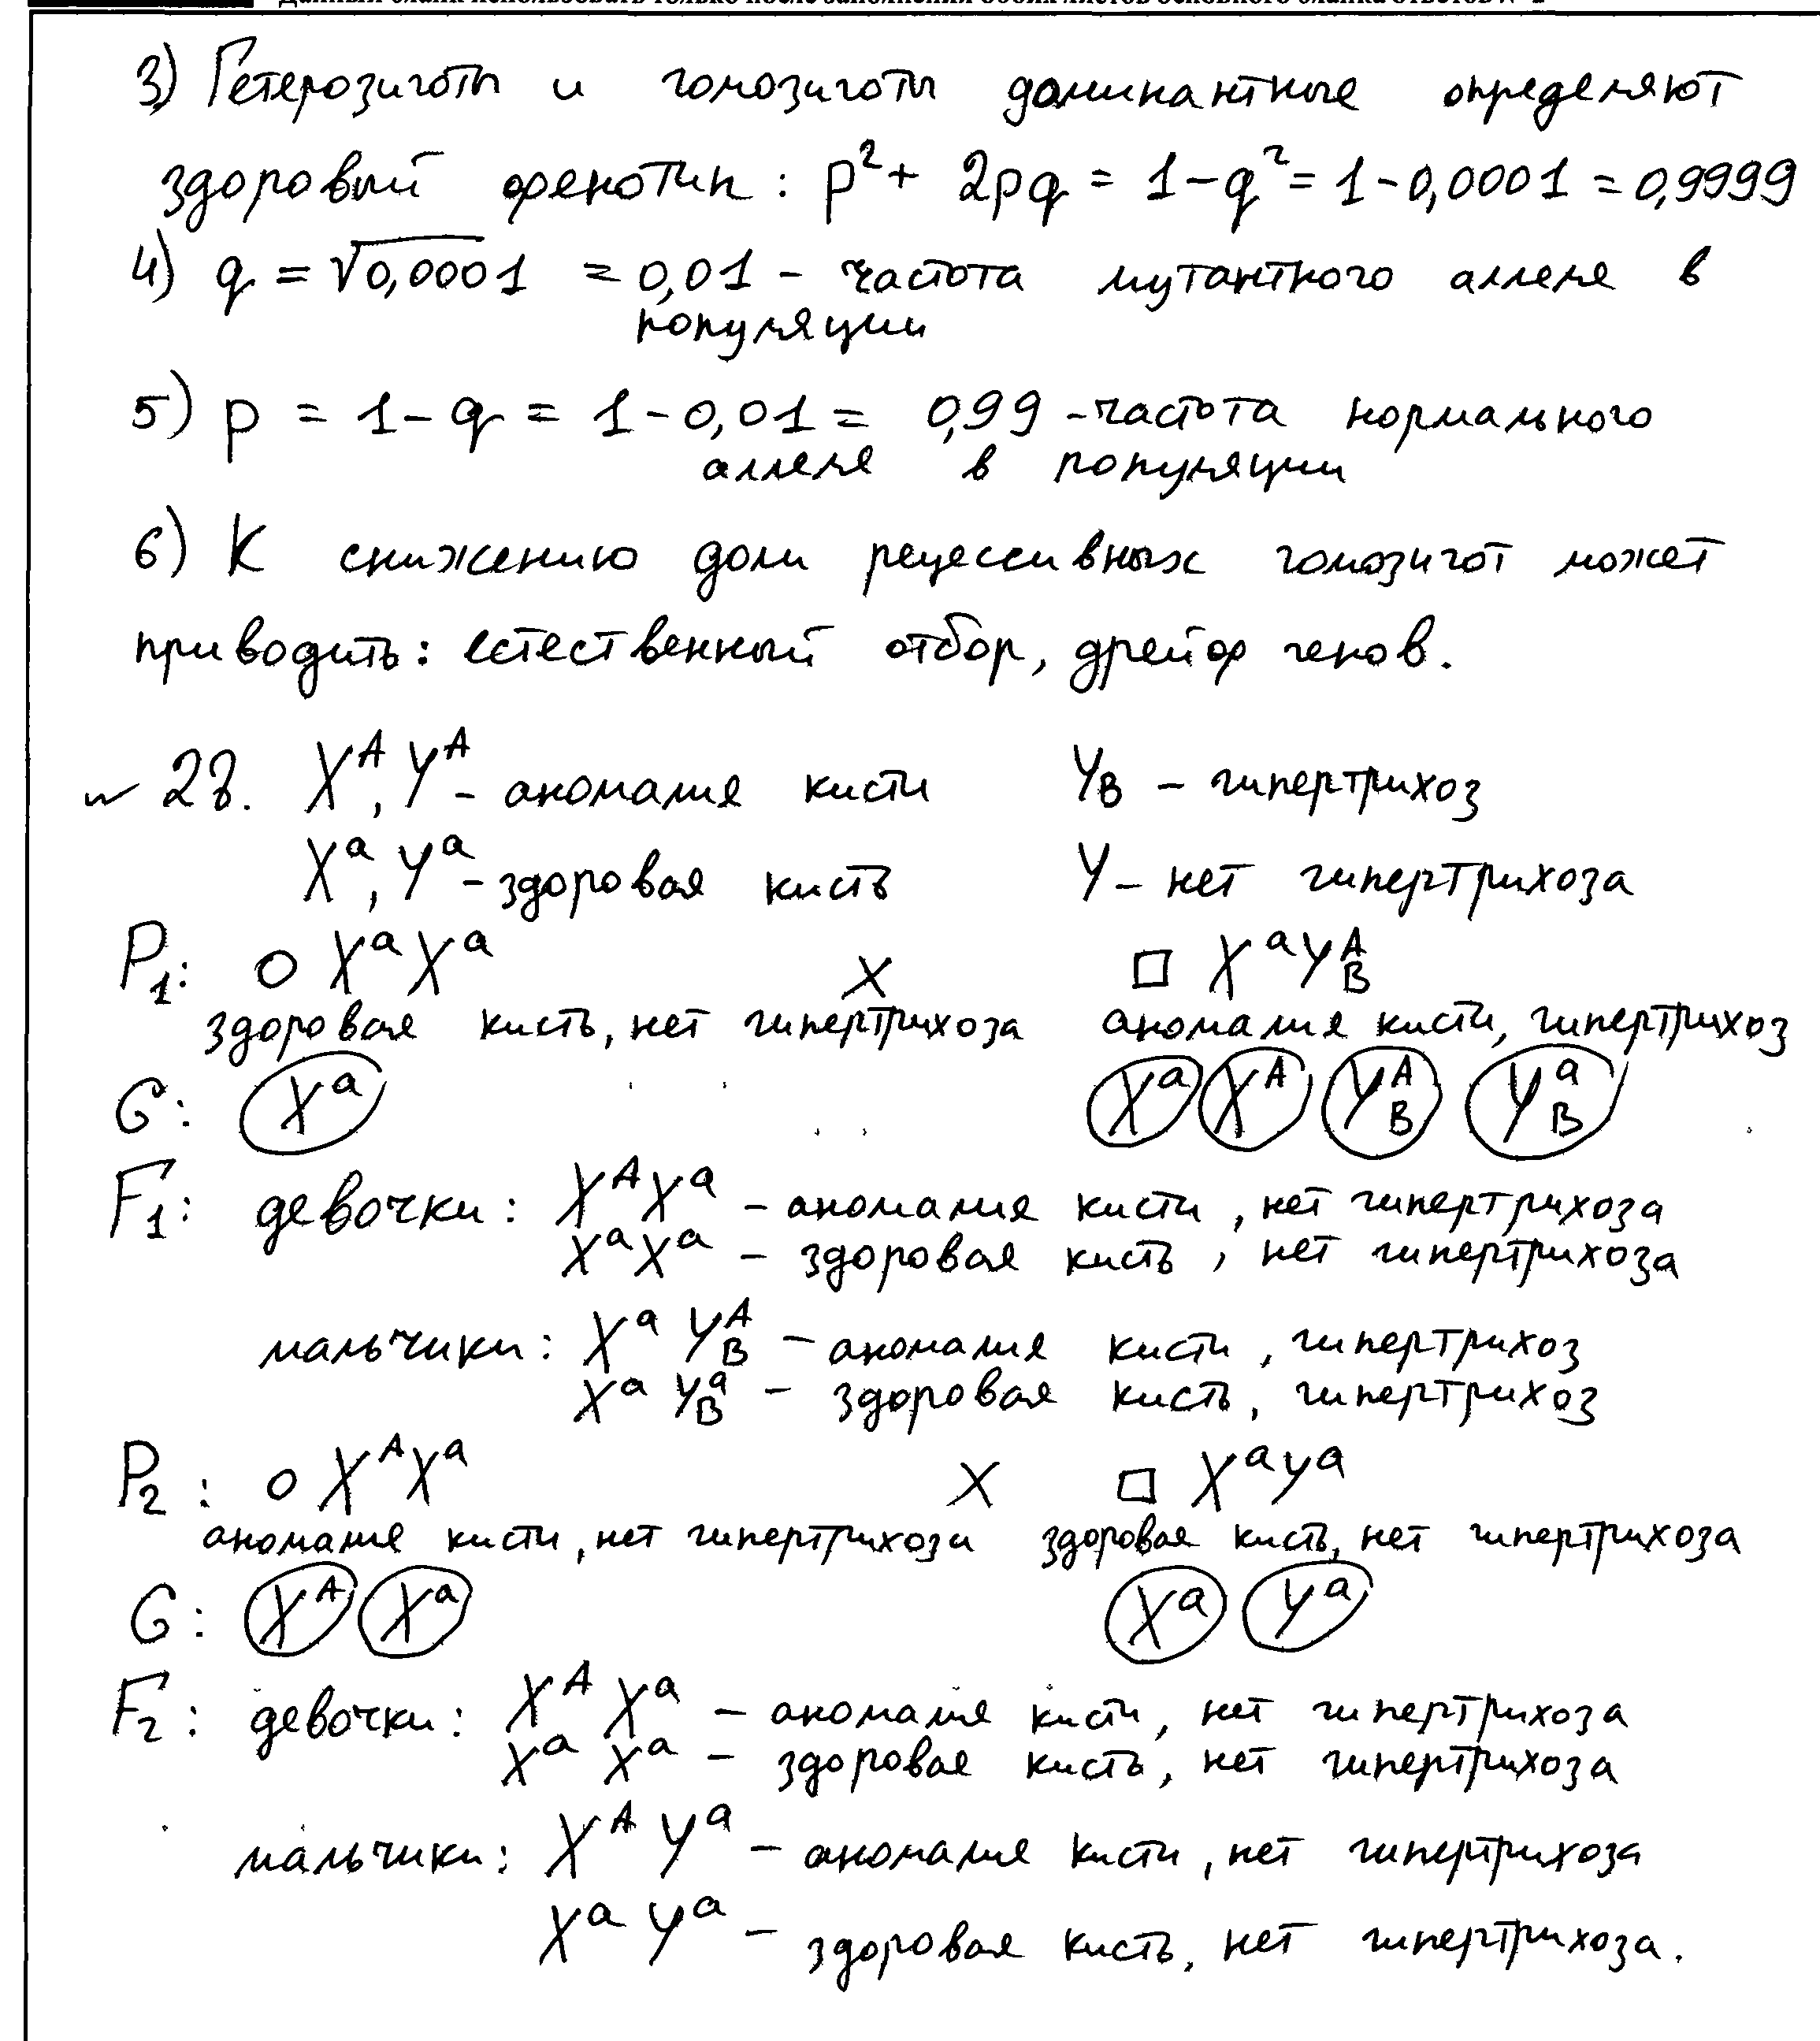 3) Гетерозиготы и гомозиготы доминантные определяют
здоровый фенотип: p² + 2pq = 1 - q² = 1 - 0,0001 = 0,9999
4) q = √0,0001 = 0,01 - частота мутантного аллеля в
популяции
5) p = 1 - q = 1 - 0,01 = 0,99 - частота нормального
аллеля в популяции
6) К снижению доли рецессивных гомозигот может
приводить: естественный отбор, дрейф генов.
~ 28. Xᴬ, Yᴬ - аномалия кисти Y_B - гипертрихоз
Xᵃ, Yᵃ - здоровая кисть Y - нет гипертрихоза
P₁: ○ XᵃXᵃ X □ XᵃYᴬ_B
здоровая кисть, нет гипертрихоза аномалия кисти, гипертрихоз
G: Xᵃ Xᵃ Xᴬ Yᴬ_B Yᵃ_B
F₁: девочки: XᴬXᵃ - аномалия кисти, нет гипертрихоза
XᵃXᵃ - здоровая кисть, нет гипертрихоза
мальчики: Xᵃ Yᴬ_B - аномалия кисти, гипертрихоз
Xᵃ Yᵃ_B - здоровая кисть, гипертрихоз
P₂: ○ XᴬXᵃ X □ XᵃYᵃ
аномалия кисти, нет гипертрихоза здоровая кисть, нет гипертрихоза
G: Xᴬ Xᵃ Xᵃ Yᵃ
F₂: девочки: Xᴬ Xᵃ - аномалия кисти, нет гипертрихоза
Xᵃ Xᵃ - здоровая кисть, нет гипертрихоза
мальчики: Xᴬ Yᵃ - аномалия кисти, нет гипертрихоза
Xᵃ Yᵃ - здоровая кисть, нет гипертрихоза.